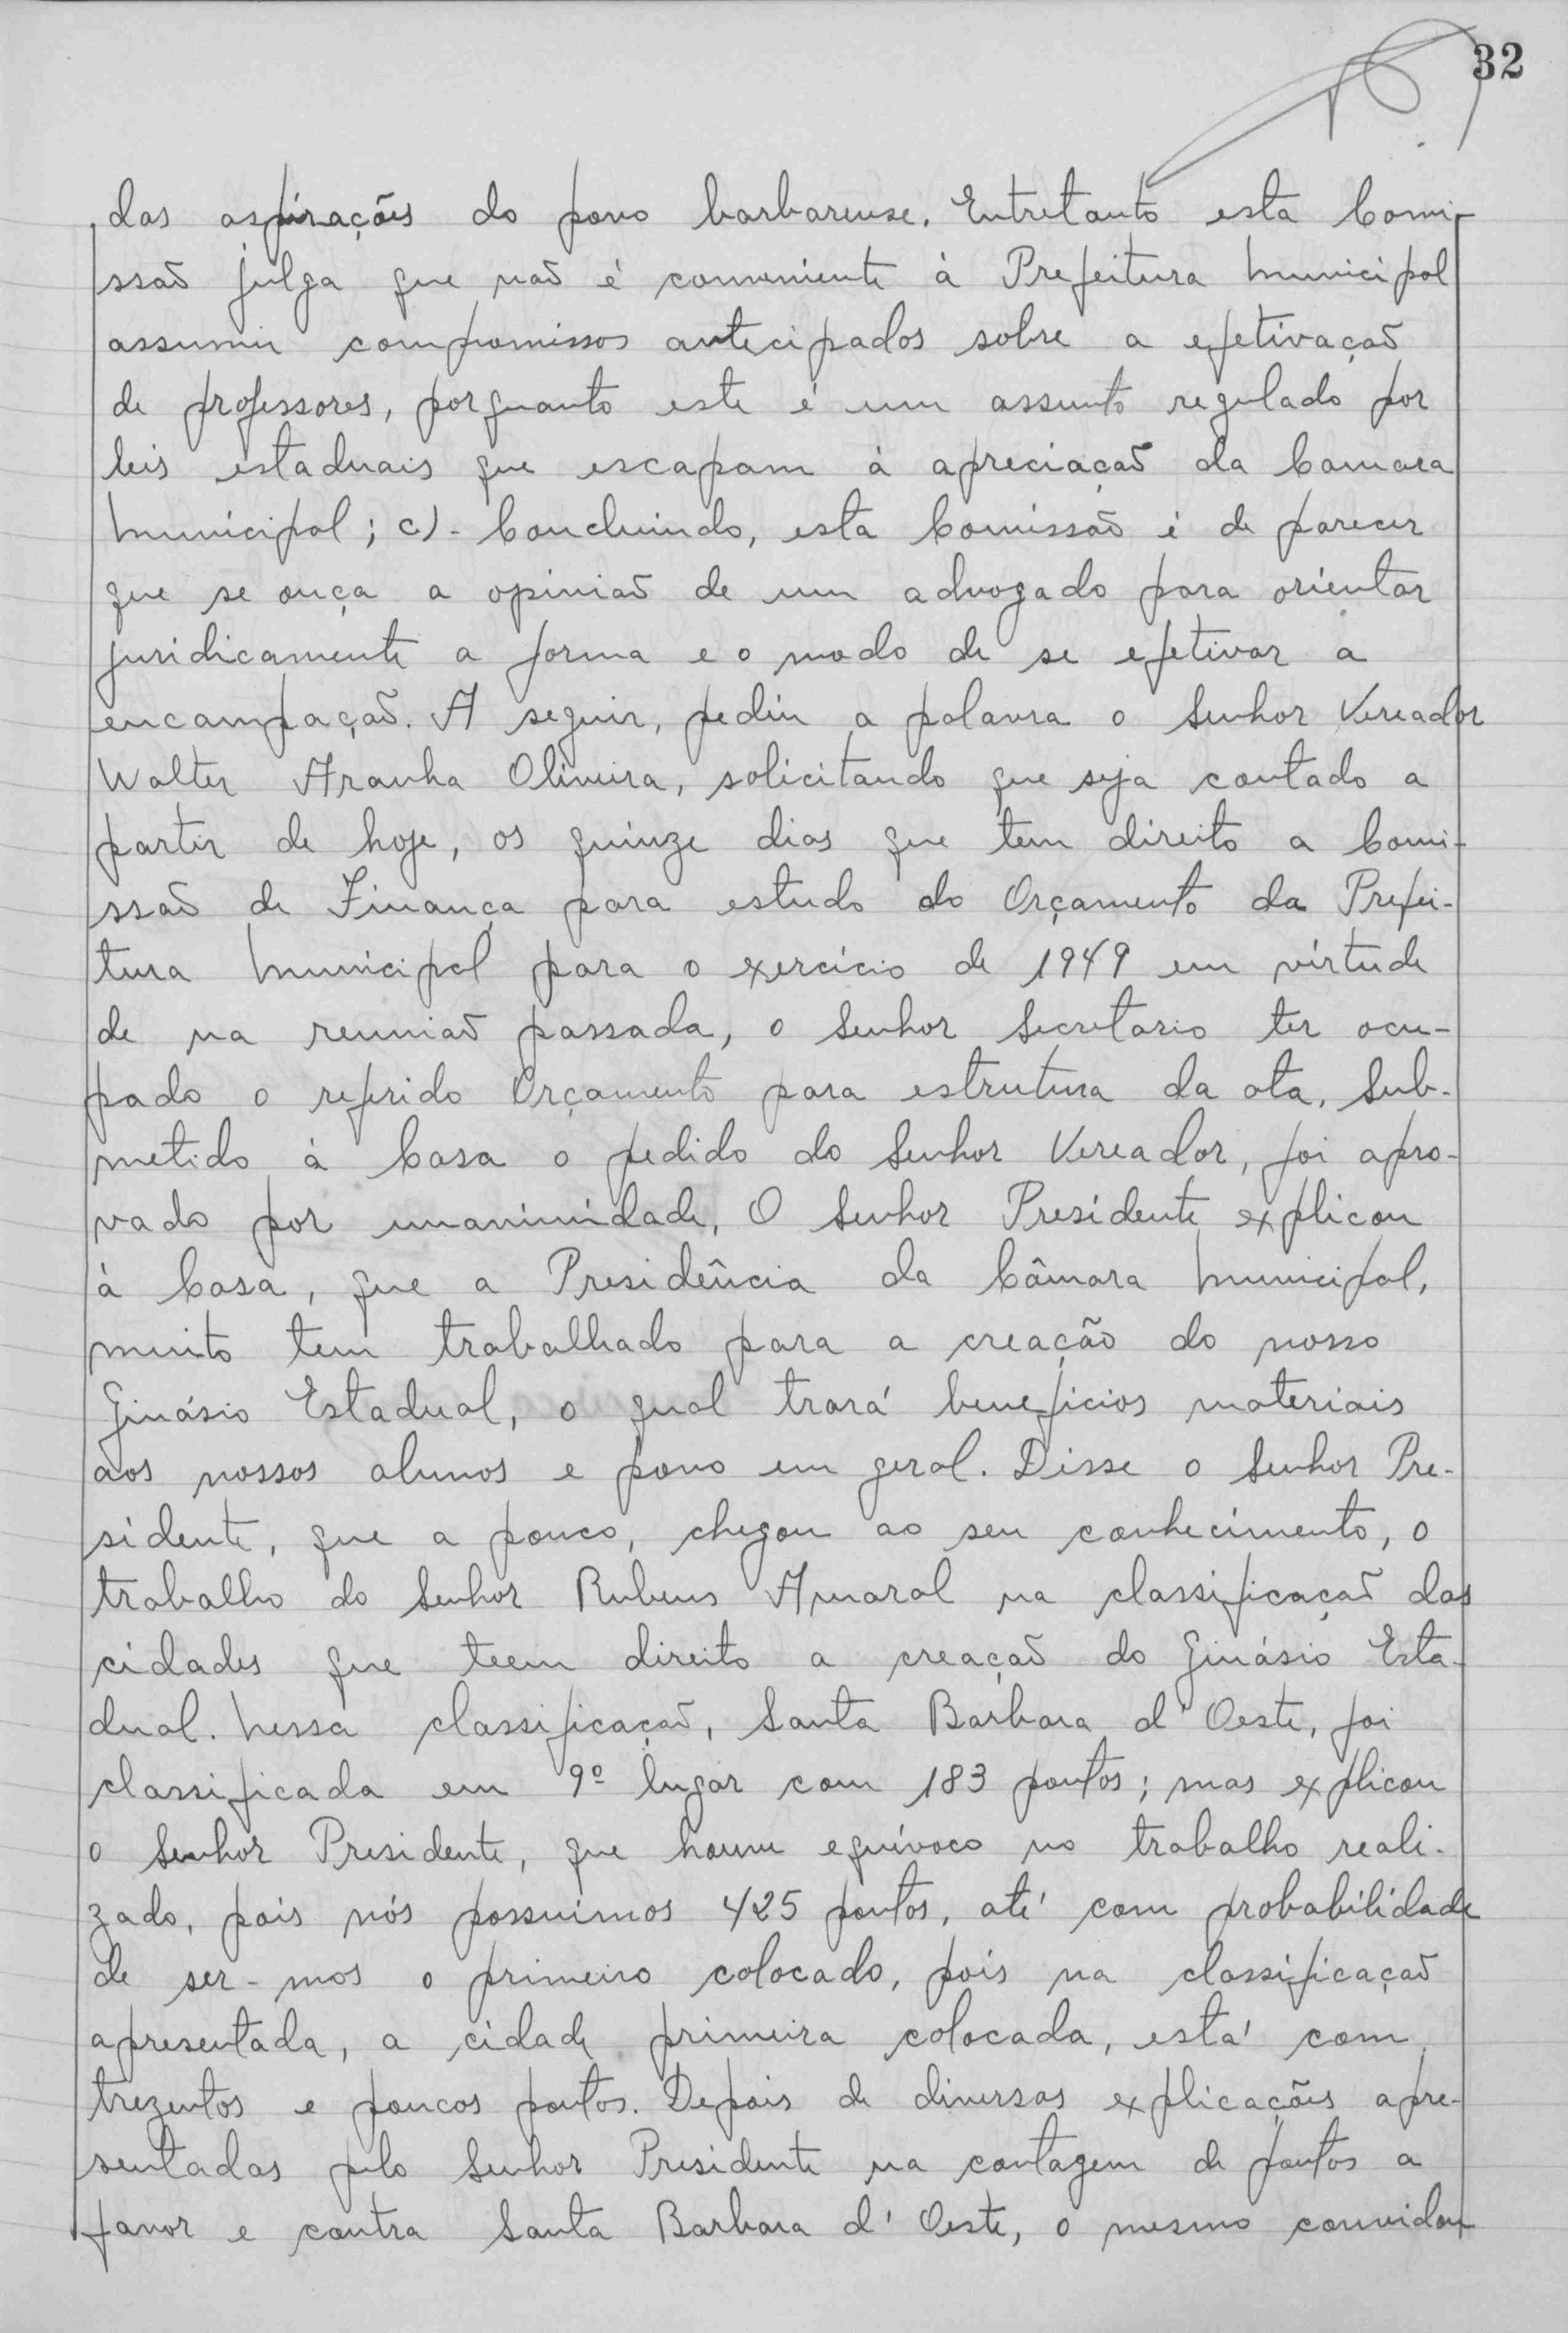 32
das aspirações do povo barbarense. Entretanto esta Comi-
ssão julga que não é conveniente à Prefeitura Municipal
assumir compromissos antecipados sobre a efetivação
de professores, porquanto este é um assunto regulado por
leis estaduais que escapam à apreciação da Camara
Municipal; c)- Concluindo, esta Comissão é de parecer
que se ouça a opinião de um advogado para orientar
juridicamente a forma e o modo de se efetivar a
encampação. A seguir, pediu a palavra o Senhor Vereador
Walter Aranha Oliveira, solicitando que seja contado a
partir de hoje, os quinze dias que tem direito a Comi-
ssão de Finança para estudo do Orçamento da Prefei-
tura Municipal para o exercício de 1949 em virtude
de na reunião passada, o Senhor Secretario ter ocu-
pado o referido Orçamento para estrutura da ata. Sub-
metido à Casa o pedido do Senhor Vereador, foi apro-
vado por unanimidade. O Senhor Presidente explicou
à Casa, que a Presidência da Câmara Municipal,
muito tem trabalhado para a creação do nosso
Ginásio Estadual, o qual trará beneficios materiais
aos nossos alunos e povo em geral. Disse o Senhor Pre-
sidente, que a pouco, chegou ao seu conhecimento, o
trabalho do Senhor Rubens Amaral na classificação das
cidades que teem direito a creação do Ginásio Esta-
dual. Nessa classificação, Santa Barbara d'Oeste, foi
classificada em 9º lugar com 183 pontos; mas explicou
o Senhor Presidente, que houve equívoco no trabalho reali-
zado, pois nós possuimos 425 pontos, até com probabilidade
de ser-mos o primeiro colocado, pois na classificação
apresentada, a cidade primeira colocada, está com
trezentos e poucos pontos. Depois de diversas explicações apre-
sentadas pelo Senhor Presidente na contagem de pontos a
favor e contra Santa Barbara d'Oeste, o mesmo convidou